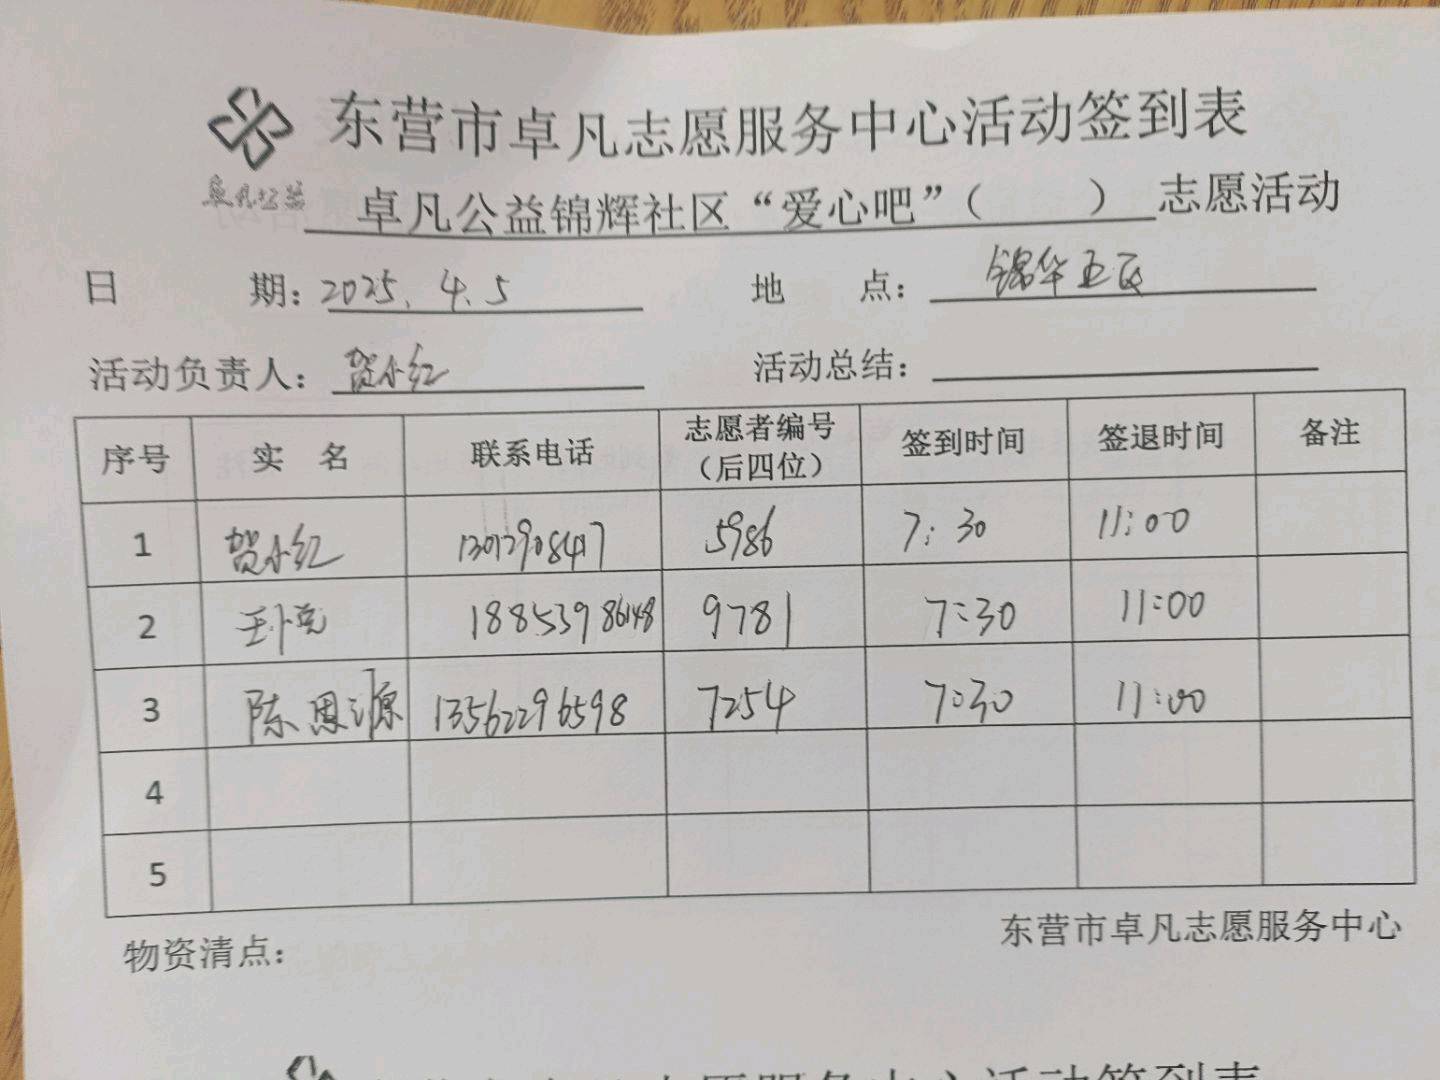 东营市卓凡志愿服务中心活动签到表
卓凡公益
卓凡公益锦辉社区“爱心吧”（ ）志愿活动
日 期：2025.4.5 地 点：锦华五区
活动负责人：贺小红 活动总结：
序号 实 名 联系电话 志愿者编号（后四位） 签到时间 签退时间 备注
1 贺小红 5986 7:30 11:00
2 18853986148 9781 7:30 11:00
3 陈恩源 13562296598 7254 7:30 11:00
4
5
物资清点： 东营市卓凡志愿服务中心